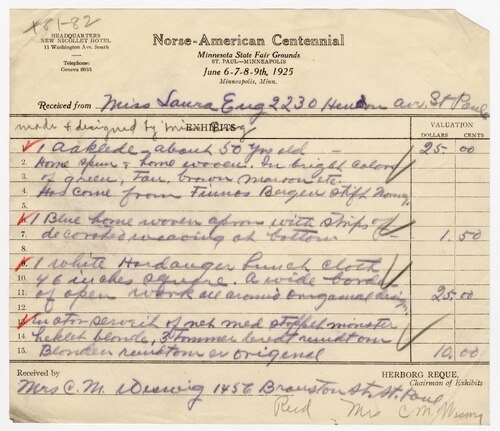 *81-82
HEADQUARTERS
NEW NICOLLET HOTEL
11 Washington Ave. South
Telephone:
Geneva 4935
Norse-American Centennial
Minnesota State Fair Grounds
ST. PAUL—MINNEAPOLIS
June 6-7-8-9th, 1925
Minneapolis, Minn.
Received from Miss Laura Eng 2230 Hendon ave. St Paul
made & designed by Miss Eng
EXHIBITS
VALUATION
DOLLARS CENTS
1. 1 Aaklede about 50 yrs old 25.00
2. Home spun & home woven. In bright colors
3. of green, maroon etc.
4. Has come from Bergen Stift Norway
6. 1 Blue home woven apron with strips of
7. decorated weaving at bottom 1.50
8.
9. 1 White Hardanger Lunch Cloth
10. 46 inches square. A wide border
11. of open work all around 25.00
12.
13. med stoppet mønster
14. heklet blonde, 3 tommer bredt rundtom
15. Blonden rundtom er original 10.00
Received by
HERBORG REQUE.
Chairman of Exhibits
Mrs C. M. 1456 St. Paul
Rec'd Mrs C M